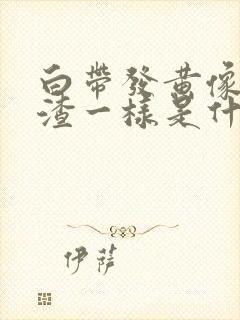 白帶發黃像
渣一樣是什
伊薩